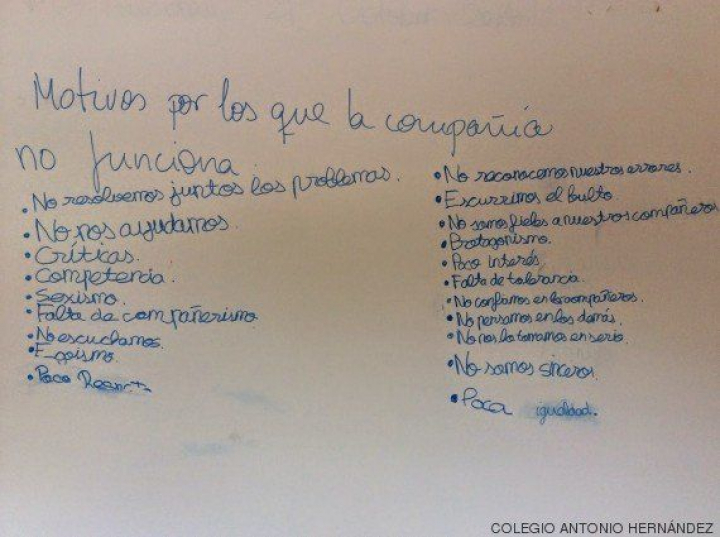 Motivos por los que la compañía
no funciona.
• No resolvemos juntos los problemas.
• No nos ayudamos.
• Críticas.
• Competencia.
• Sexismo.
• Falta de compañerismo
• No escuchamos.
• Egoismo.
• Poco
• No reconocemos nuestros errores.
• Escurrimos el bulto.
• No somos fieles a nuestros compañeros
• Protagonismo.
• Poco interés.
• Falta de tolerancia.
• No confiamos en los compañeros.
• No pensamos en los demás.
• No nos lo tomamos en serio.
• No somos sinceros.
• Poca igualdad.
COLEGIO ANTONIO HERNÁNDEZ